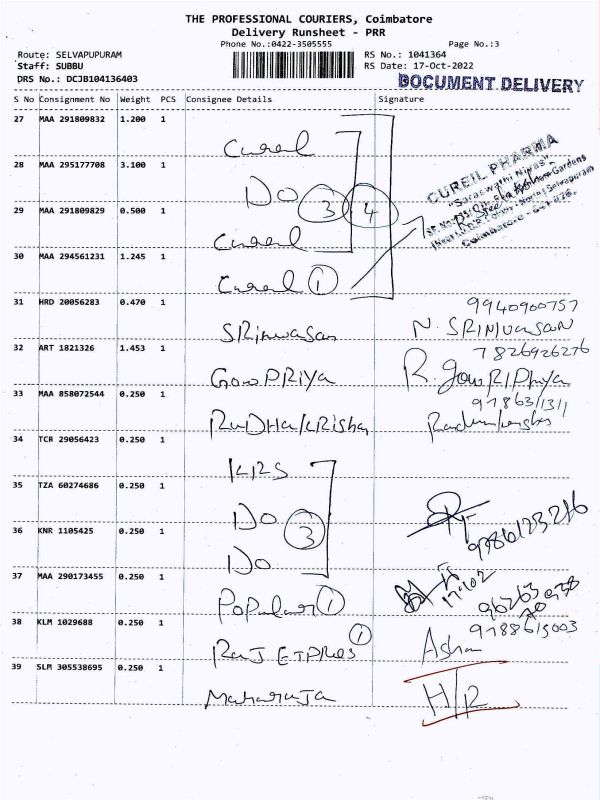 THE PROFESSIONAL COURIERS, Coimbatore
Delivery Runsheet - PRR
Phone No.:0422-3505555 Page No.:3
Route: SELVAPUPURAM RS No.: 1041364
Staff: SUBBU RS Date: 17-Oct-2022
DRS No.: DCJB104136403 DOCUMENT DELIVERY
S No Consignment No Weight PCS Consignee Details Signature
27 MAA 291809832 1.200 1 Cureil
28 MAA 295177708 3.100 1 Do 3 4
CUREIL PHARMA
"Saraswathi Nivas"
29 MAA 291809829 0.500 1 Cureil
Coimbatore - 641 026.
30 MAA 294561231 1.245 1 Cureil 1
31 HRD 20056283 0.470 1 SRinivasan 9940900757
N. SRINIVASAN
32 ART 1821326 1.453 1 GowPRiya 7826926276
R. GowRIPhiya
33 MAA 858072544 0.250 1 RaDHaKRisha 9786311311
34 TCR 29056423 0.250 1 KRS
35 TZA 60274686 0.250 1 Do
36 KNR 1105425 0.250 1 Do 3 9786123216
37 MAA 290173455 0.250 1 Popular 1
38 KLM 1029688 0.250 1 RaJ EXPRes 1 9788615003
Asha
39 SLM 305538695 0.250 1 MaharaJa H/R